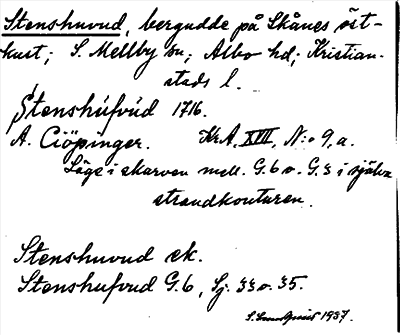 Stenshuvud, bergudde på Skånes öst-
kust; S. Mellby sn; Albo hd; Kristian-
stads l.
Stenshúfvúd 1716.
A. Ciöpinger. KrA, XVII, N:o 9, a.
Läge i skarven mell. G.6 o. G.3 i själva
strandkonturen.
Stenshuvud ek.
Stenshufvud G.6, Sj. 33 o. 35.
1937.